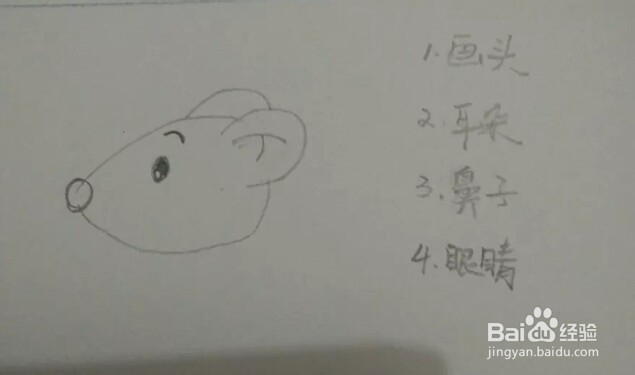 1.画头
2.耳朵
3.鼻子
4.眼睛
Baidu经验
jingyan.baidu.com